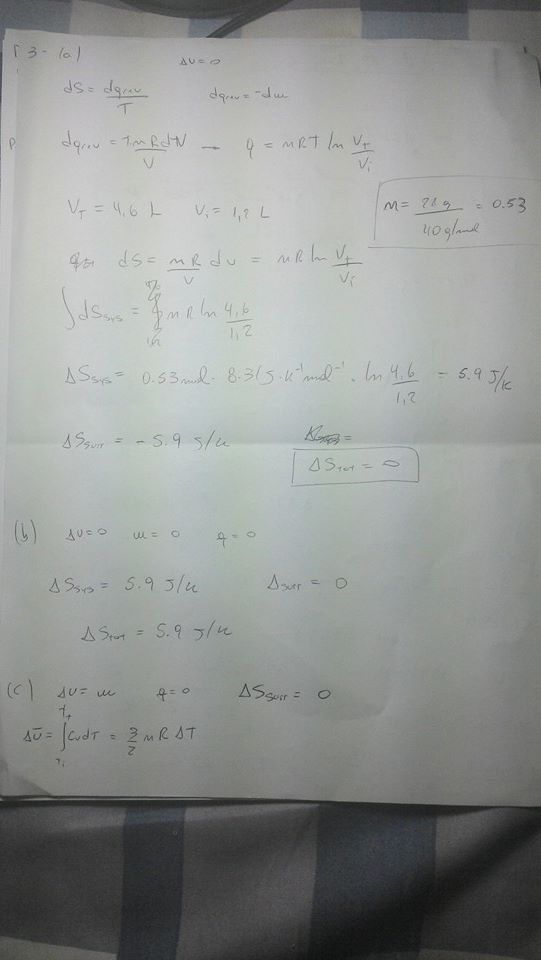 P 3- (a)
ΔU = 0
dS = dqrev / T    dqrev = -dw
dqrev = T n R dV / V — q = nRT ln Vf / Vi
Vf = 4,6 L    Vi = 1,2 L
n = 21 g / 40 g/mol = 0.53
dS = nR / V dv = nR ln Vf / Vi
∫ dSsys = nR ln 4,6 / 1,2
ΔSsys = 0.53 mol · 8.31 J·K⁻¹mol⁻¹ · ln 4,6 / 1,2 = 5.9 J/K
ΔSsurr = - 5.9 J/K
ΔStot = 0
(b)    ΔU = 0    w = 0    q = 0
ΔSsys = 5.9 J/K    Δsurr = 0
ΔStot = 5.9 J/K
(c)    ΔU = w    q = 0    ΔSsurr = 0
ΔŪ = ∫ CvdT = 3/2 n R ΔT